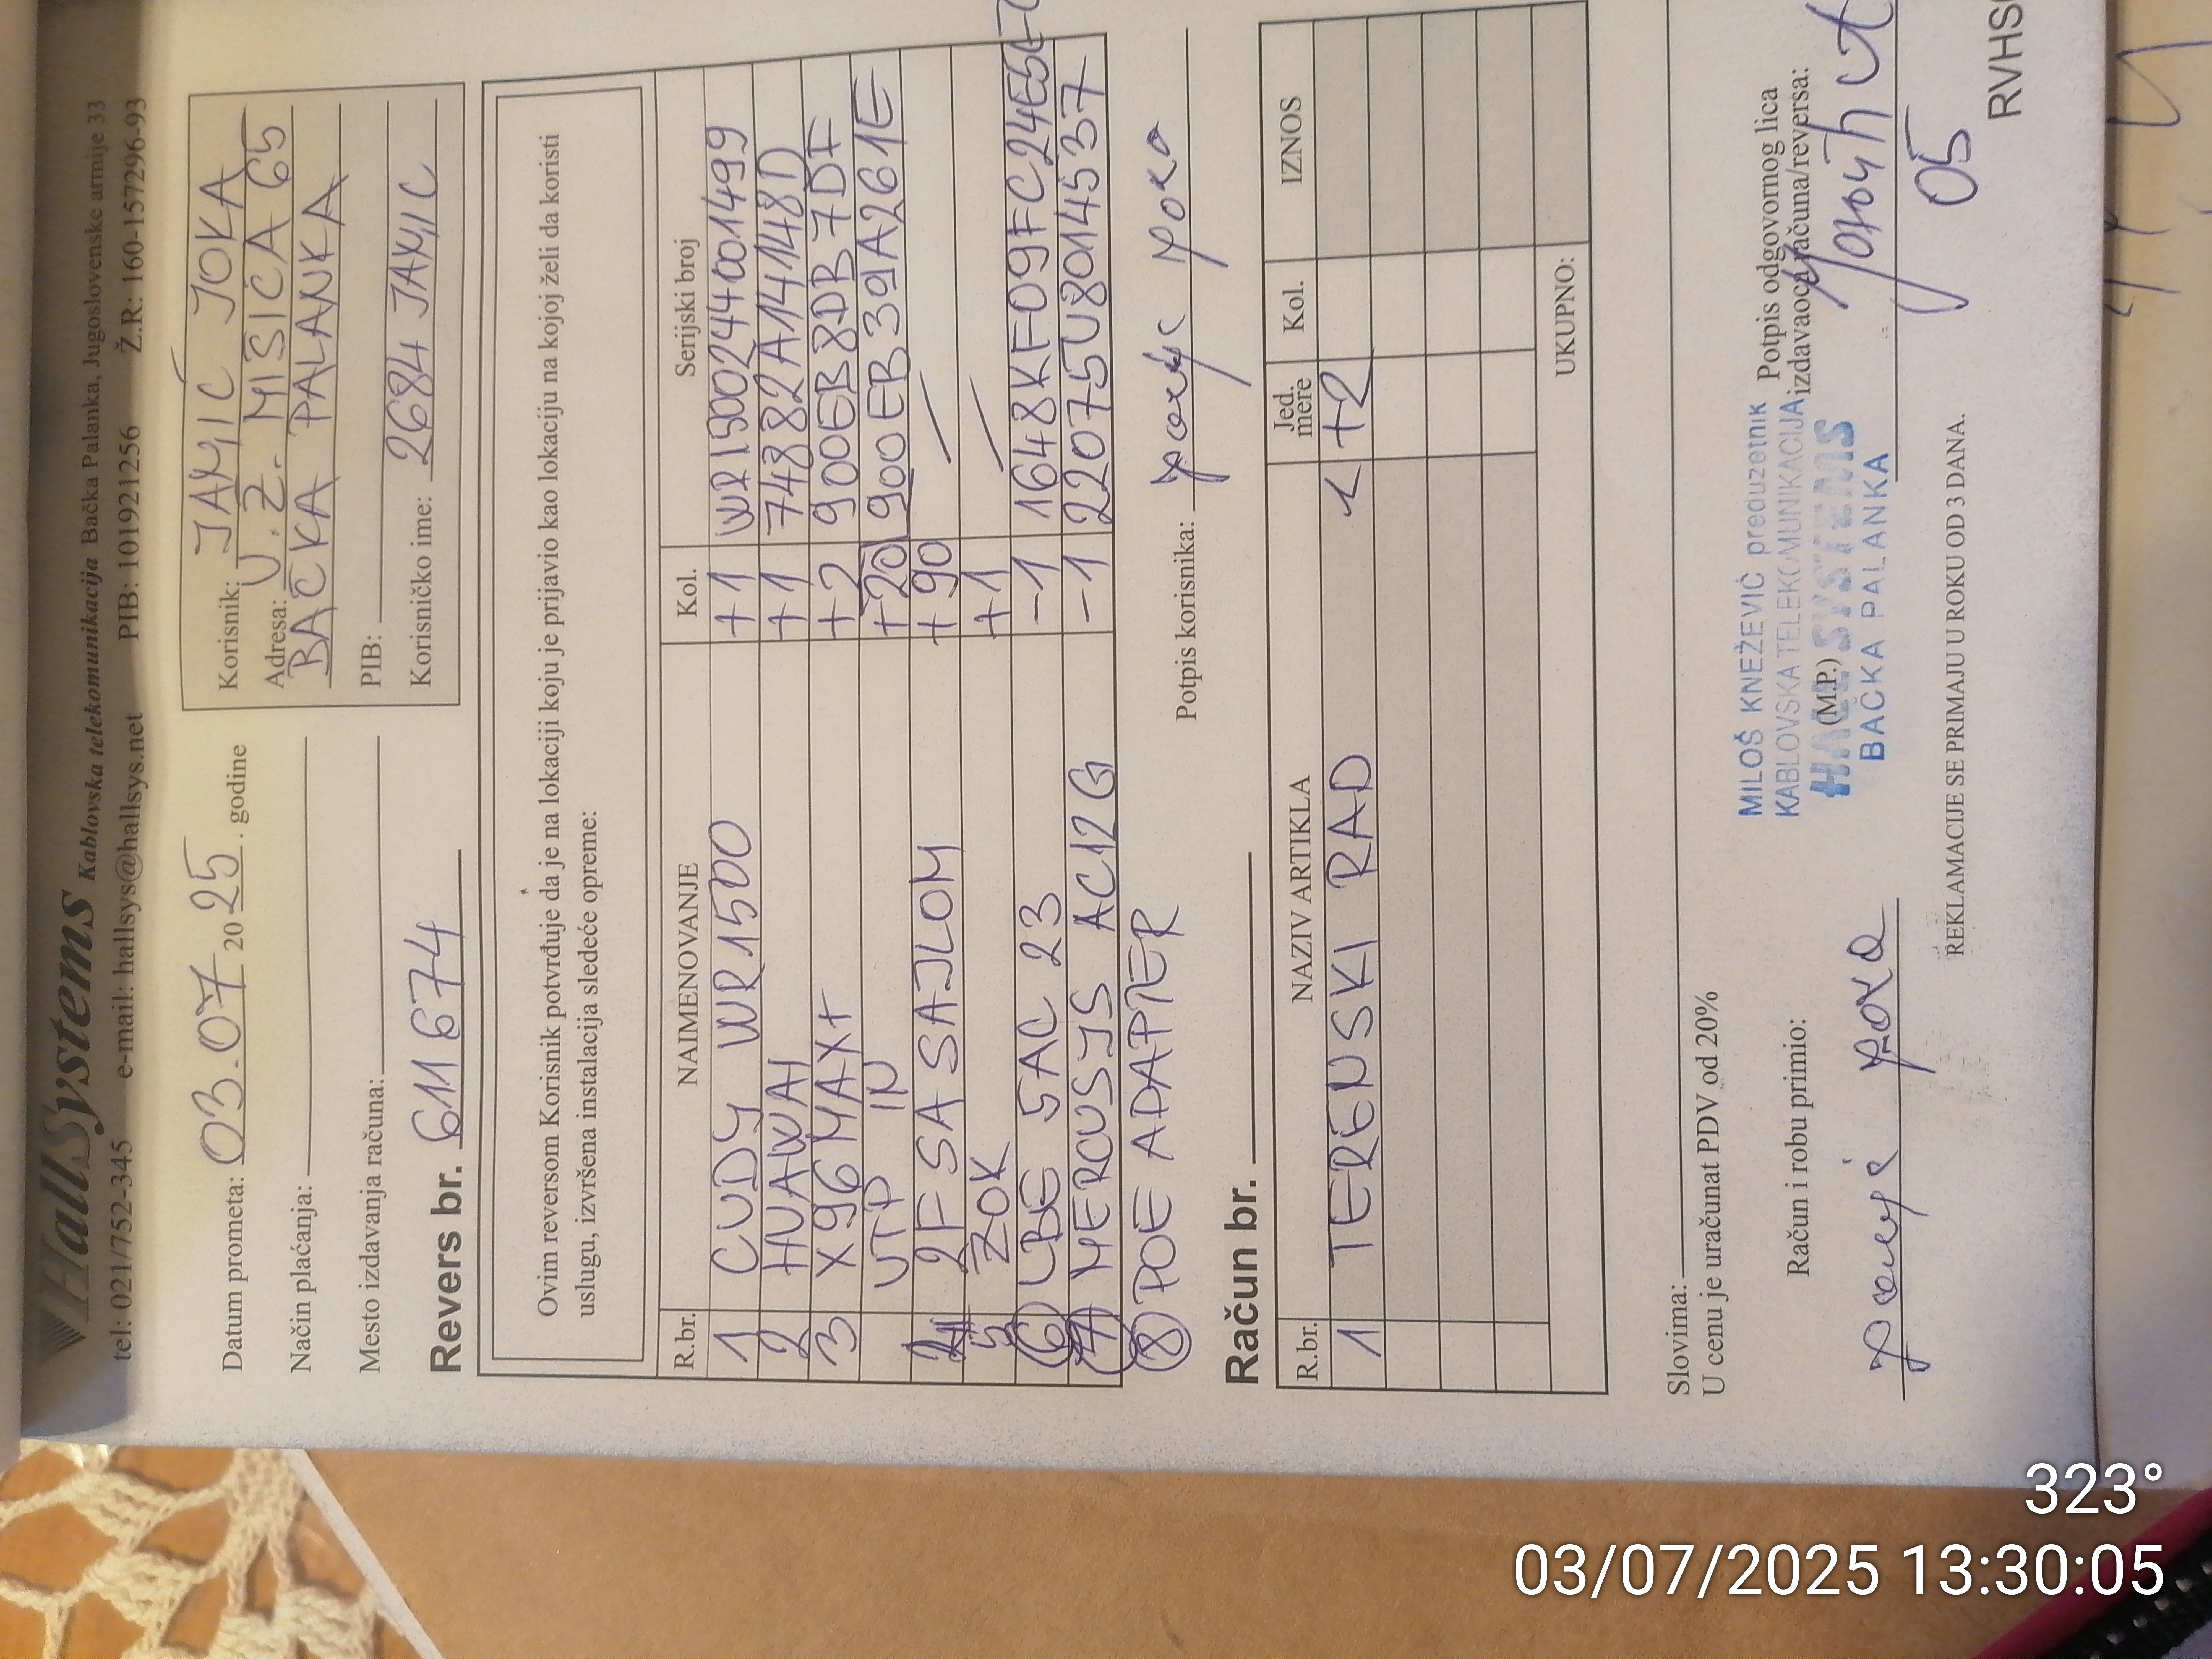 HallSystems Kablovska telekomunikacija Bačka Palanka, Jugoslovenske armije 33
tel: 021/752-345 e-mail: hallsys@hallsys.net PIB: 101921256 Ž.R: 160-157296-93
Datum prometa: 03.07 2025. godine
Način plaćanja:
Mesto izdavanja računa:
Revers br. 611674
Korisnik: JAMIĆ JOKA
Adresa: U. Z. MISICA 65
BAČKA PALANKA
PIB:
Korisničko ime: 2684 JAMIC
Ovim reversom Korisnik potvrđuje da je na lokaciji koju je prijavio kao lokaciju na kojoj želi da koristi
uslugu, izvršena instalacija sledeće opreme:
R.br. NAIMENOVANJE Kol. Serijski broj
1 CUDY WR1500 +1 WR1500244001499
2 HUAWAI +1 74882A14148D
3 X96 MAX+ +2 900EB8DB7DF
UTP IN +20 900EB39A261E
2F SA SAJLOM +90
5 ZOK +1
6 LBE 5AC 23 -1 1648KF09FC24E5
7 MERCUSYS AC12G -1 22075U8014537
8 POE ADAPTER
Potpis korisnika:
Račun br.
R.br. NAZIV ARTIKLA Jed. mere Kol. IZNOS
1 TERENSKI RAD
UKUPNO:
Slovima:
U cenu je uračunat PDV od 20%
Račun i robu primio:
MILOŠ KNEŽEVIĆ preduzetnik
KABLOVSKA TELEKOMUNIKACIJA
(M.P.)
HALL SYSTEMS
BAČKA PALANKA
Potpis odgovornog lica
izdavaoca računa/reversa:
05
REKLAMACIJE SE PRIMAJU U ROKU OD 3 DANA.
RVHS
323°
03/07/2025 13:30:05